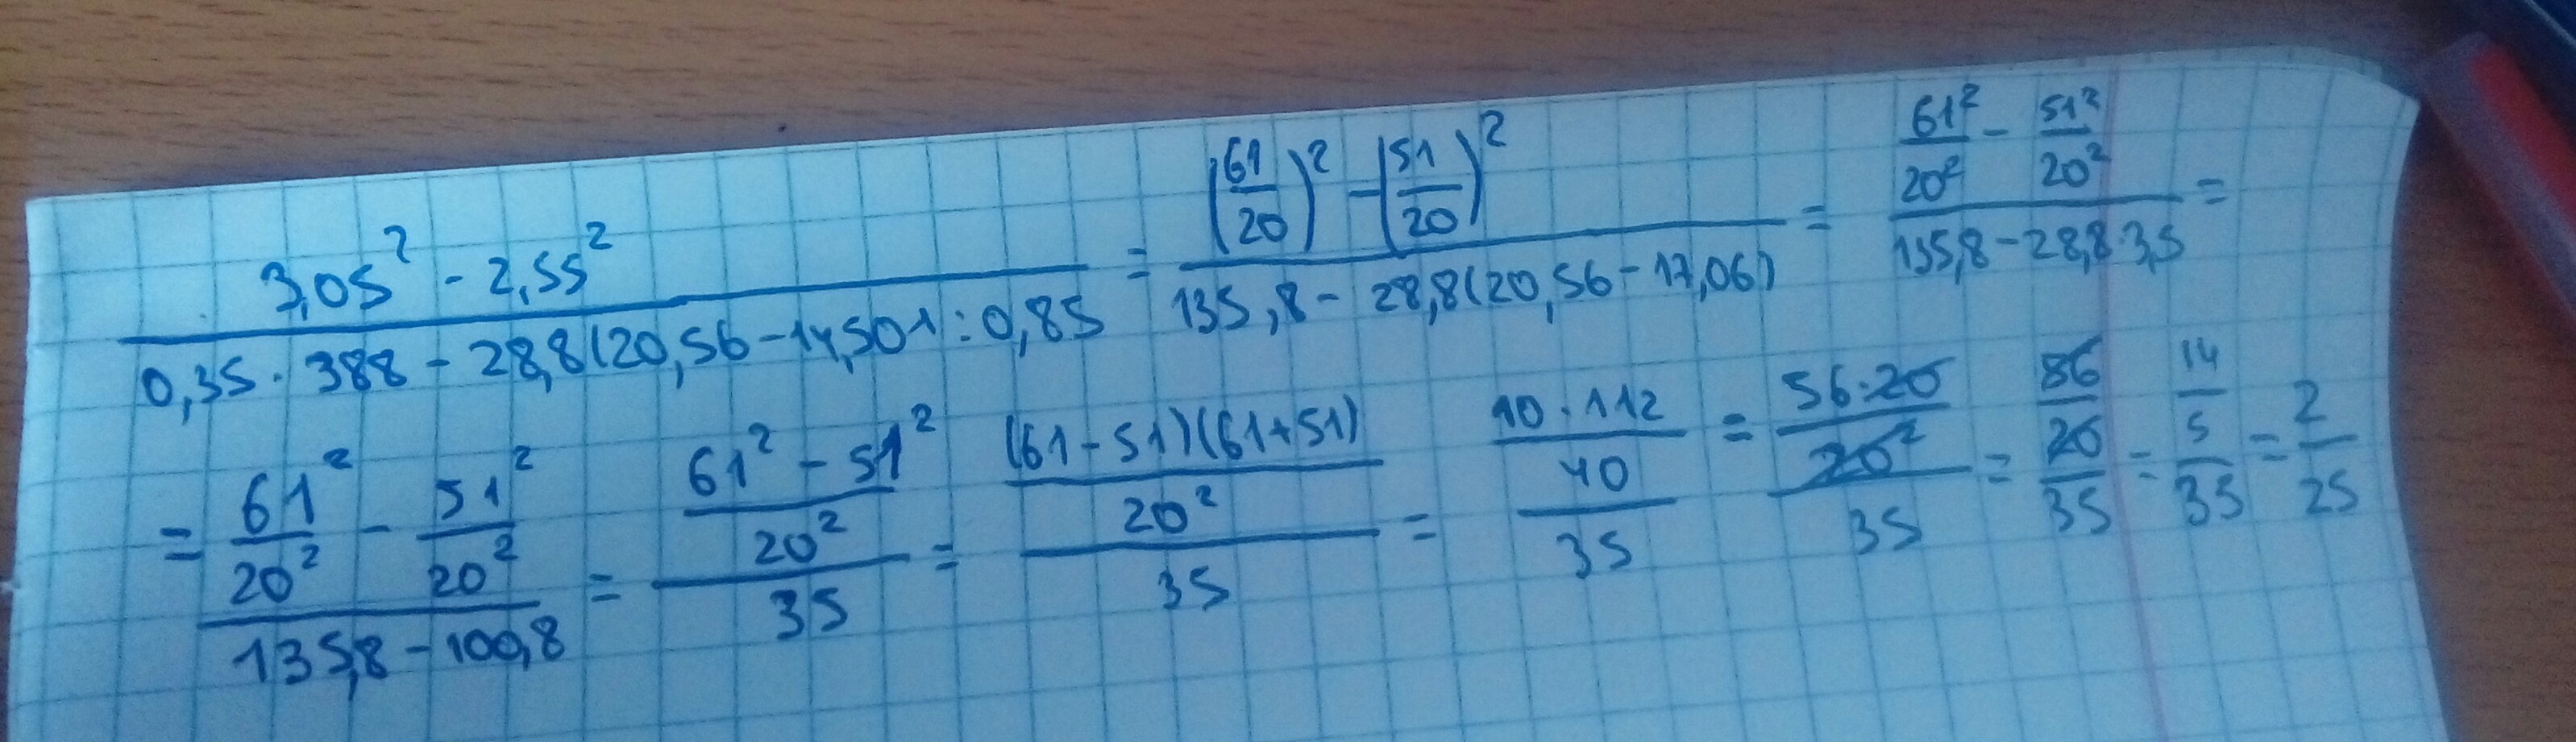 (3,05² - 2,55²)/(0,35 · 388 - 28,8(20,56 - 14,501 : 0,85) = ((61/20)² - (51/20)²)/(135,8 - 28,8(20,56 - 17,06)) = (61²/20² - 51²/20²)/(135,8 - 28,8·3,5) =
= (61²/20² - 51²/20²)/(135,8 - 100,8) = ((61² - 51²)/20²)/35 = ((61 - 51)(61 + 51)/20²)/35 = (10 · 112/40)/35 = (56 · 20/20²)/35 = (86/20)/35 = (14/5)/35 = 2/25